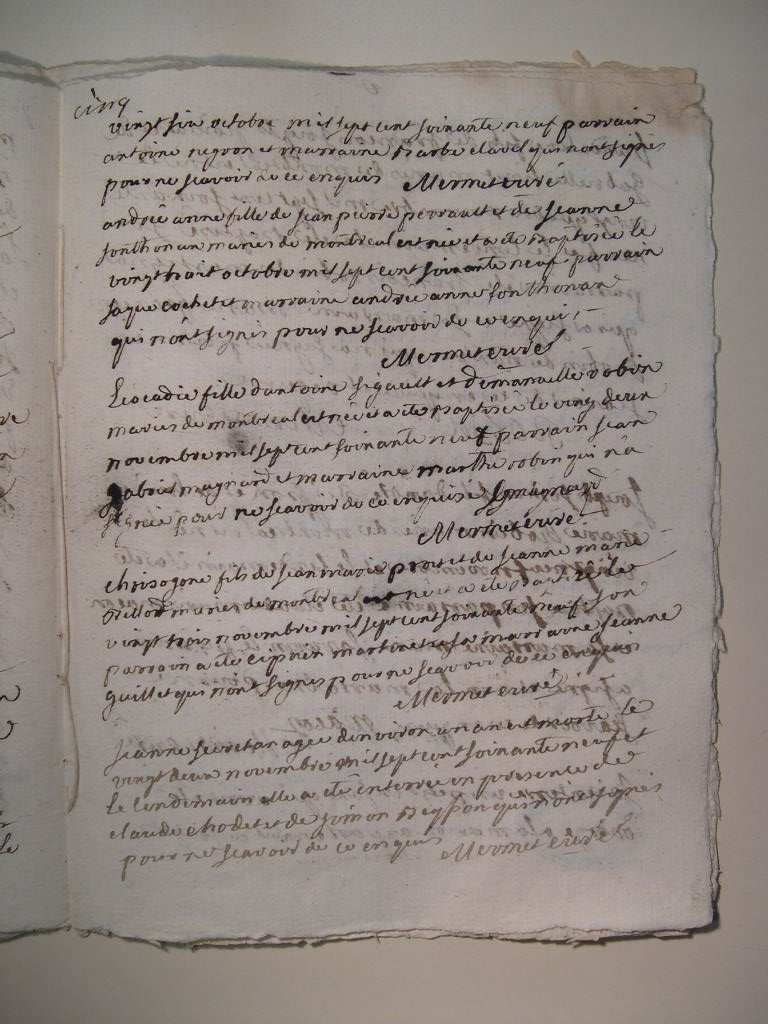 cinq
vingt six octobre mil sept cent soixante neuf parrain
antoine negron et marraine Barbe clavel qui nont signés
pour ne scavoir de ce enquis Mermet curé
andreé anne fille de jean pierre perrault et de jeanne
fonthonan mariés de montreal est née et a été Baptisée le
vingt huit octobre mil sept cent soixante neuf parrain
jaque cochet et marraine andrée anne fonthonan
qui n'ont signés pour ne scavoir de ce enquis
Mermet curé
Leocadie fille d'antoine sigault et robin
mariés de montreal est née et a été Baptisée le ving deux
novembre mil sept cent soixante neuf parrain jean
magnard et marraine marthe robin qui n'a
signée pour ne scavoir de ce enquise magnard
Mermet curé
chrisogone fils de jean marie prost et de jeanne marie
mariés de montreal est né et a été Batisé le
vingt trois novembre mil sept cent soixante neuf son
parrain a été ciprien martinet et sa marraine jeanne
guillet qui n'ont signés pour ne scavoir de ce enquis
Mermet curé
jeanne secretan agée d'environ un an est morte le
vingt deux novembre mil sept cent soixante neuf et
le lendemain elle a été enterrée en presence de
claude chodet et de simon qui n'ont signés
pour ne scavoir de ce enquis Mermet curé